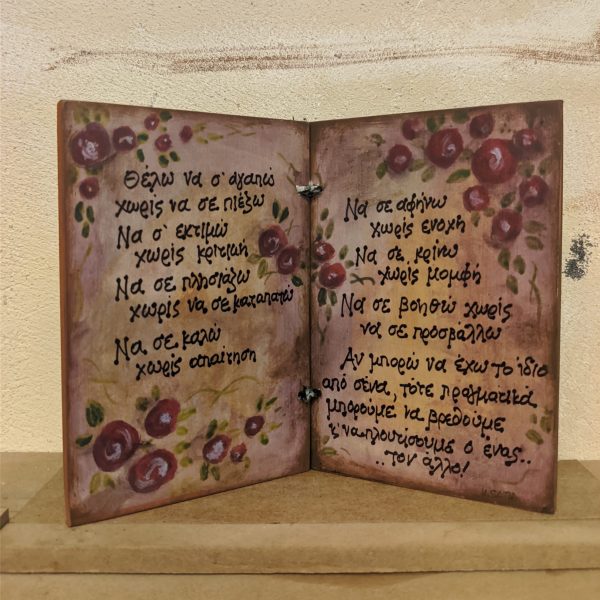 Θέλω να σ' αγαπώ
χωρίς να σε πιέζω
Να σ' εκτιμώ
χωρίς κριτική
Να σε πλησιάζω
χωρίς να σε καταπατώ
Να σε καλώ
χωρίς απαίτηση
Να σε αφήνω
χωρίς ενοχή
Να σε κρίνω
χωρίς μομφή
Να σε βοηθώ χωρίς
να σε προσβάλλω
Αν μπορώ να έχω το ίδιο
από σένα, τότε πραγματικά
μπορούμε να βρεθούμε
κ' να πλουτίσουμε ο ένας..
..τον άλλο!